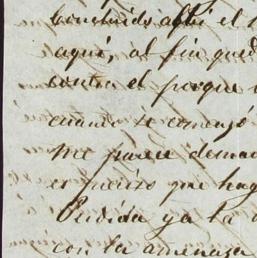 concluido allí el
aquí, al fin qued
contra el porque
cuando se comenzó
me parece dema
es preciso que hag
Perdida ya la
con la amenaza